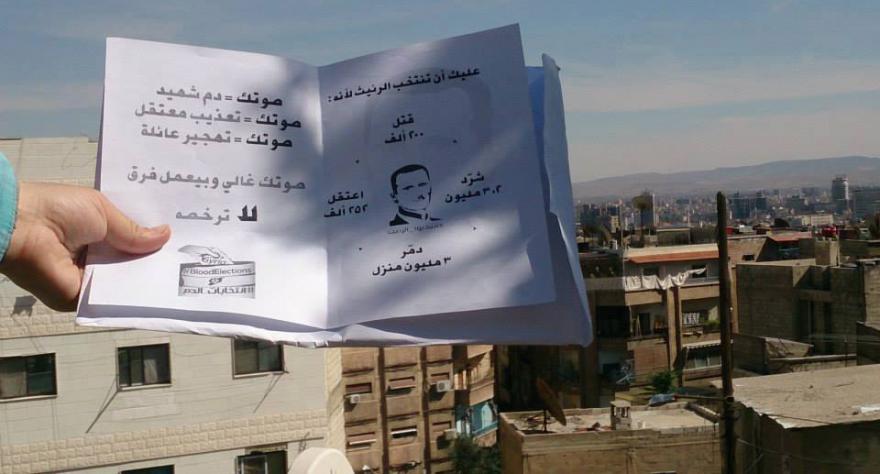 عليك أن تنتخب الرئيس لأنه:
قتل
٢٠٠ ألف
شرّد
٣٠٢ مليون
اعتقل
٢٥٢ ألف
دمّر
٣ مليون منزل
صوتك = دم شهيد
صوتك = تعذيب معتقل
صوتك = تهجير عائلة
صوتك غالي وبيعمل فرق
لا ترخصه
Syria
#BloodElections
#انتخابات_الدم